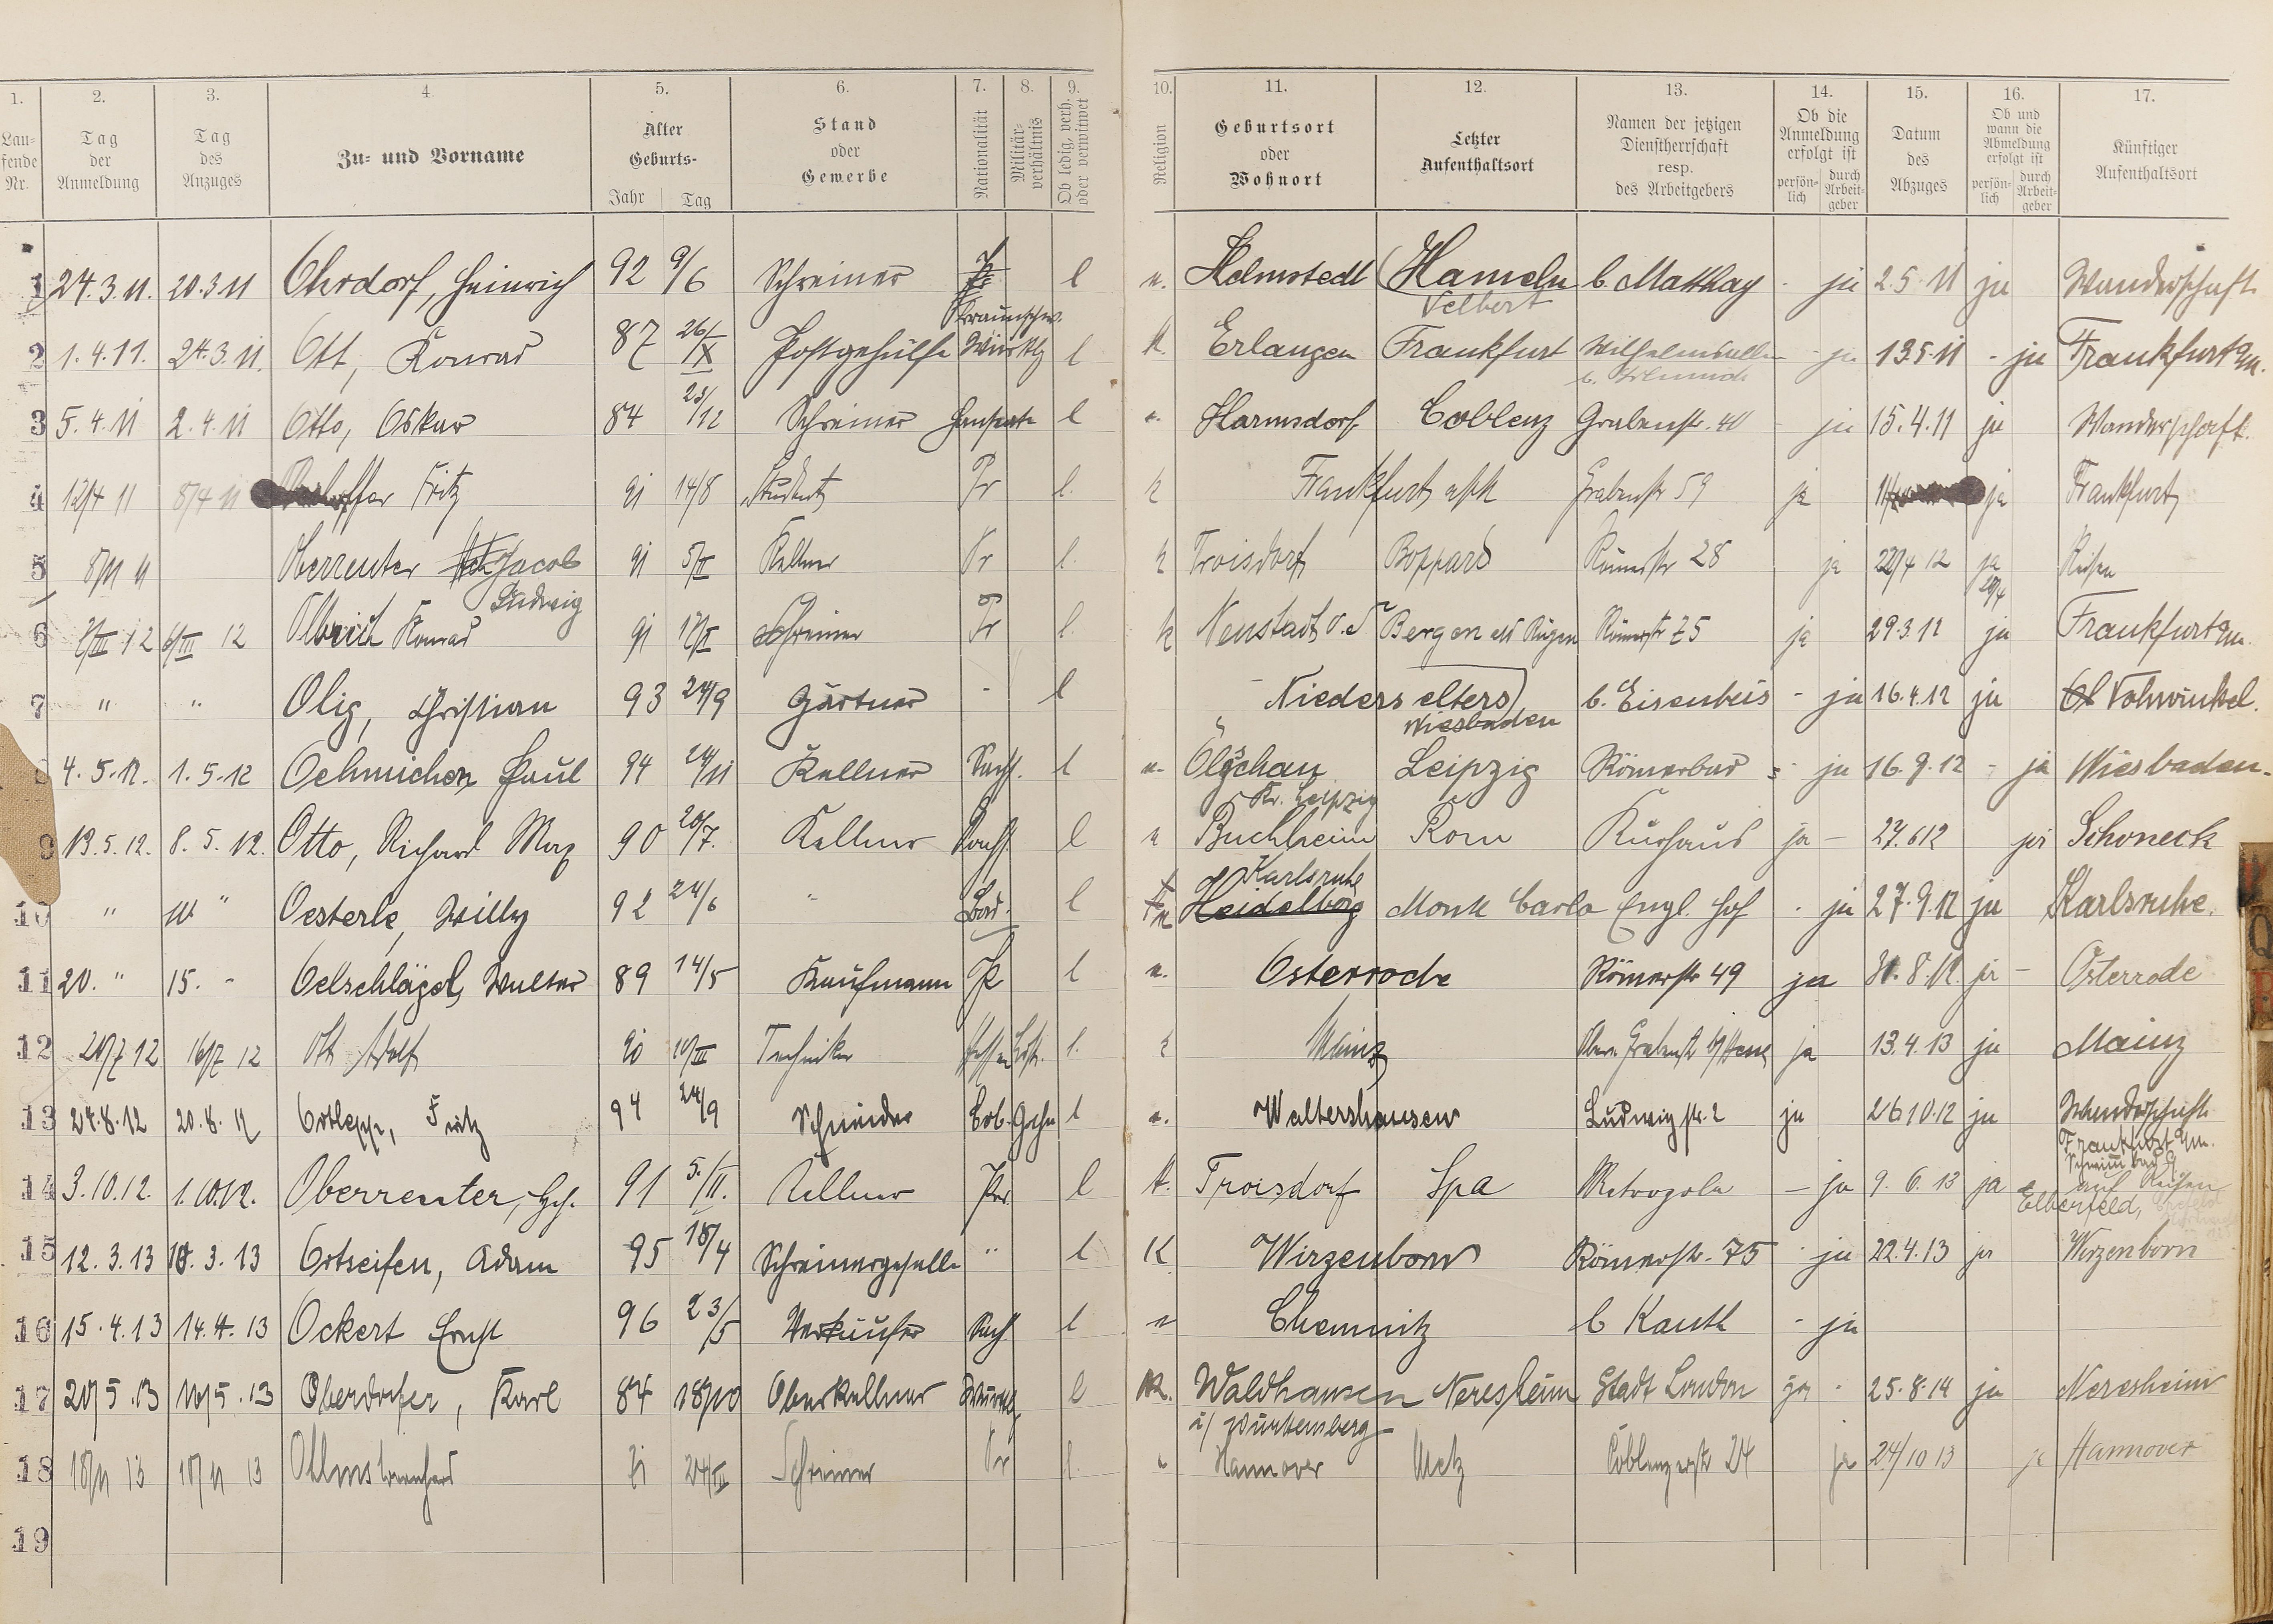 1. 2. 3. 4. 5. 6. 7. 8. 9. 10. 11. 12. 13. 14. 15. 16. 17.
Lau-
fende
Nr.
Tag
der
Anmeldung
Tag
des
Anzuges
Zu- und Vorname
Alter
Geburts-
Jahr Tag
Stand
oder
Gewerbe
Nationalität
Militär-
verhältnis
Ob ledig, verh.
oder verwitwet
Religion
Geburtsort
oder
Wohnort
Letzter
Aufenthaltsort
Namen der jetzigen
Dienstherrschaft
resp.
des Arbeitgebers
Ob die
Anmeldung
erfolgt ist
persön-
lich
durch
Arbeit-
geber
Datum
des
Abzuges
Ob und
wann die
Abmeldung
erfolgt ist
persön-
lich
durch
Arbeit-
geber
Künftiger
Aufenthaltsort
1 24.3.11. 20.3.11 Ohrdorf, Heinrich 92 9/6 Schreiner l Helmstedt Hameln b. Matthay - ja 2.5.11 ja Wanderschaft
Braunschw. Velbert
2 1.4.11. 24.3.11. Ott, Konrad 87 26/IX Postgehülfe Württbg l K. Erlangen Frankfurt - ja 13.5.11 - ja Frankfurt a/M.
3 5.4.11 2.4.11 Otto, Oskar 84 23/12 Schreiner l Harmsdorf Coblenz Grabenstr. 40 - ja 15.4.11 ja Wanderschaft.
4 12/4 11 8/4 11 Fritz 91 14/8 Student Pr l. k Frankfurt Grabenstr 59 ja ja Frankfurt
5 8/11 11 Oberreuter Jacob 91 5/II Kellner Pr l. k Troisdorf Boppard Römerstr 28 ja 22/4 12 ja Reisen
Ludwig 20/4
6 7/III 12 6/III 12 Olbrich Konrad 91 Schreiner Pr l. k Neustadt Bergen Rügen Römerstr 75 ja 29.3.12 ja Frankfurt a/M.
7 " " Olig, Christian 93 24/9 Gärtner - l Niederselters b. Eisenbeis - ja 16.4.12 ja Vohwinkel.
Wiesbaden
4.5.12. 1.5.12 Oehmichen, Paul 94 24/11 Kellner Sachs. l Ölzschau Leipzig Römerbad - ja 16.9.12 - ja Wiesbaden.
Kr. Leipzig
9 13.5.12. 8.5.12. Otto, Richard Max 90 20/7. Kellner Sachs l Buchheim Rom Kurhaus ja - 27.6 12 ja Schoneck
Karlsruhe
10 " " Oesterle, Willy 92 24/6 " Bad. l Heidelberg Monte Carlo Engl. Hof - ja 27.9.12 ja Karlsruhe.
11 20. " 15. " Oelschlägel, Walter 89 14/5 Kaufmann Pr l Osterrode Römerstr 49 ja 31.8.12. ja - Osterrode
12 20/7 12 16/7 12 Ott Adolf 90 10/III Techniker Hessen l. k Mainz ja 13.4.13 ja Mainz
13 24.8.12 20.8.12 Ortlepp, Fritz 94 24/9 Schneider l Waltershausen Ludwigstr. 2 ja 26.10.12 ja Wanderschaft
Frankfurt a/M.
14 3.10.12. 1.10.12. Oberreuter, Hch. 91 5./II. Kellner Pr. l K. Troisdorf Spa Metropole - ja 9.6.13 ja auf Reisen
Elberfeld,
15 12.3.13 10.3.13 Ortseifen, Adam 95 18/4 Schreinergeselle " l K Wirzenborn Römerstr. 75 - ja 22.4.13 ja Wirzenborn
16 15.4.13 14.4.13 Ockert Ernst 96 23/5 Verkäufer Sach l Chemnitz b Kauth - ja
17 20/5.13 10/5.13 Oberdorfer, Karl 84 18/10 Oberkellner Württbg l K. Waldhausen Neresheim Stadt London ja - 25.8.14 ja Neresheim
i/ Würtemberg
18 18/4 13 18/4 13 Ohlms 24/III Schreiner Pr l. Hannover Metz Coblenzerstr 24 ja 24/10 13 ja Hannover
19